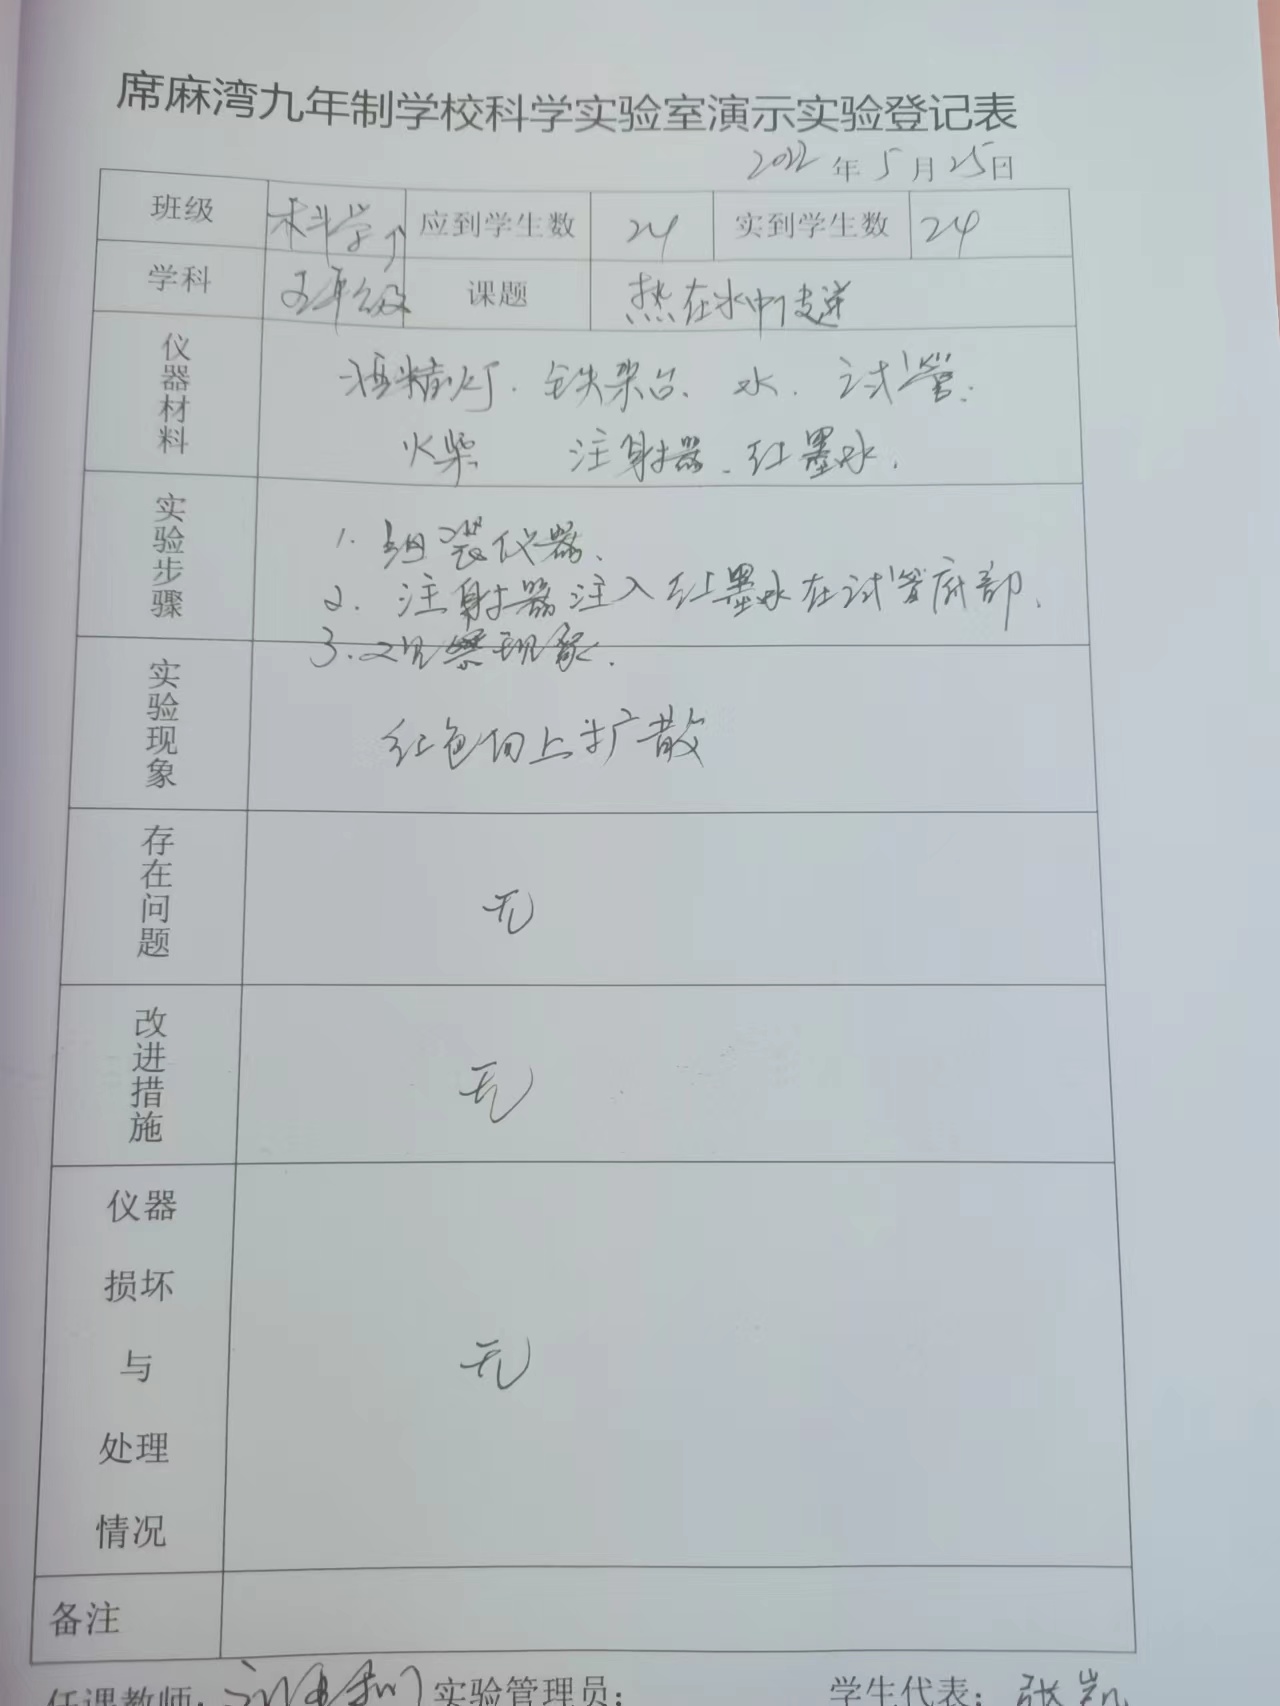 席麻湾九年制学校科学实验室演示实验登记表
2022年5月25日
班级 科学 应到学生数 24 实到学生数 24
学科 五年级 课题 热在水中传递
仪器材料 酒精灯、铁架台、水、试管、
火柴 注射器、红墨水、
实验步骤 1、组装仪器、
2、注射器注入红墨水在试管底部、
3、观察现象、
实验现象 红色向上扩散
存在问题 无
改进措施 无
仪器
损坏
与 无
处理
情况
备注
任课教师: 实验管理员: 学生代表: 张凯